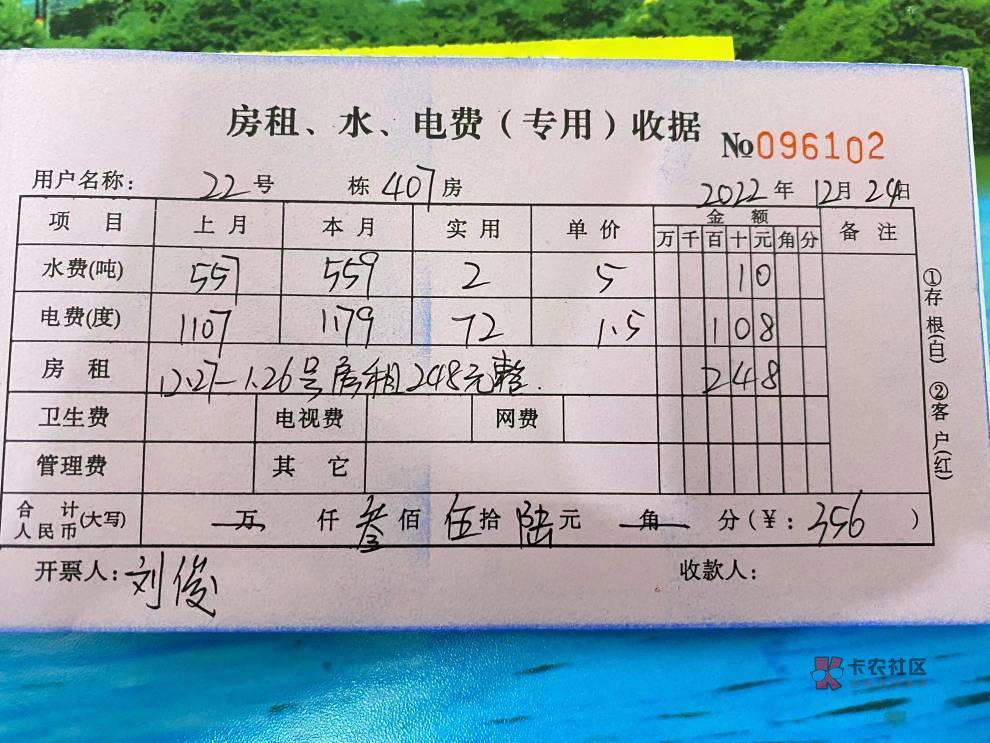 房租、水、电费（专用）收据 №096102
用户名称： 22号 栋 407房 2022年 12月 24日
项 目 上 月 本 月 实 用 单 价 金 额 备 注
万 千 百 十 元 角 分
水费(吨) 557 559 2 5 10
电费(度) 1107 1179 72 1.5 108
房 租 12.27-1.26号房租248元整. 248
卫生费 电视费 网费
管理费 其 它
合 计 人民币 (大写) 万 仟 叁佰 伍拾 陆元 角 分（¥：356 ）
开票人：刘俊 收款人：
①存 根(白) ②客 户(红)
卡农社区